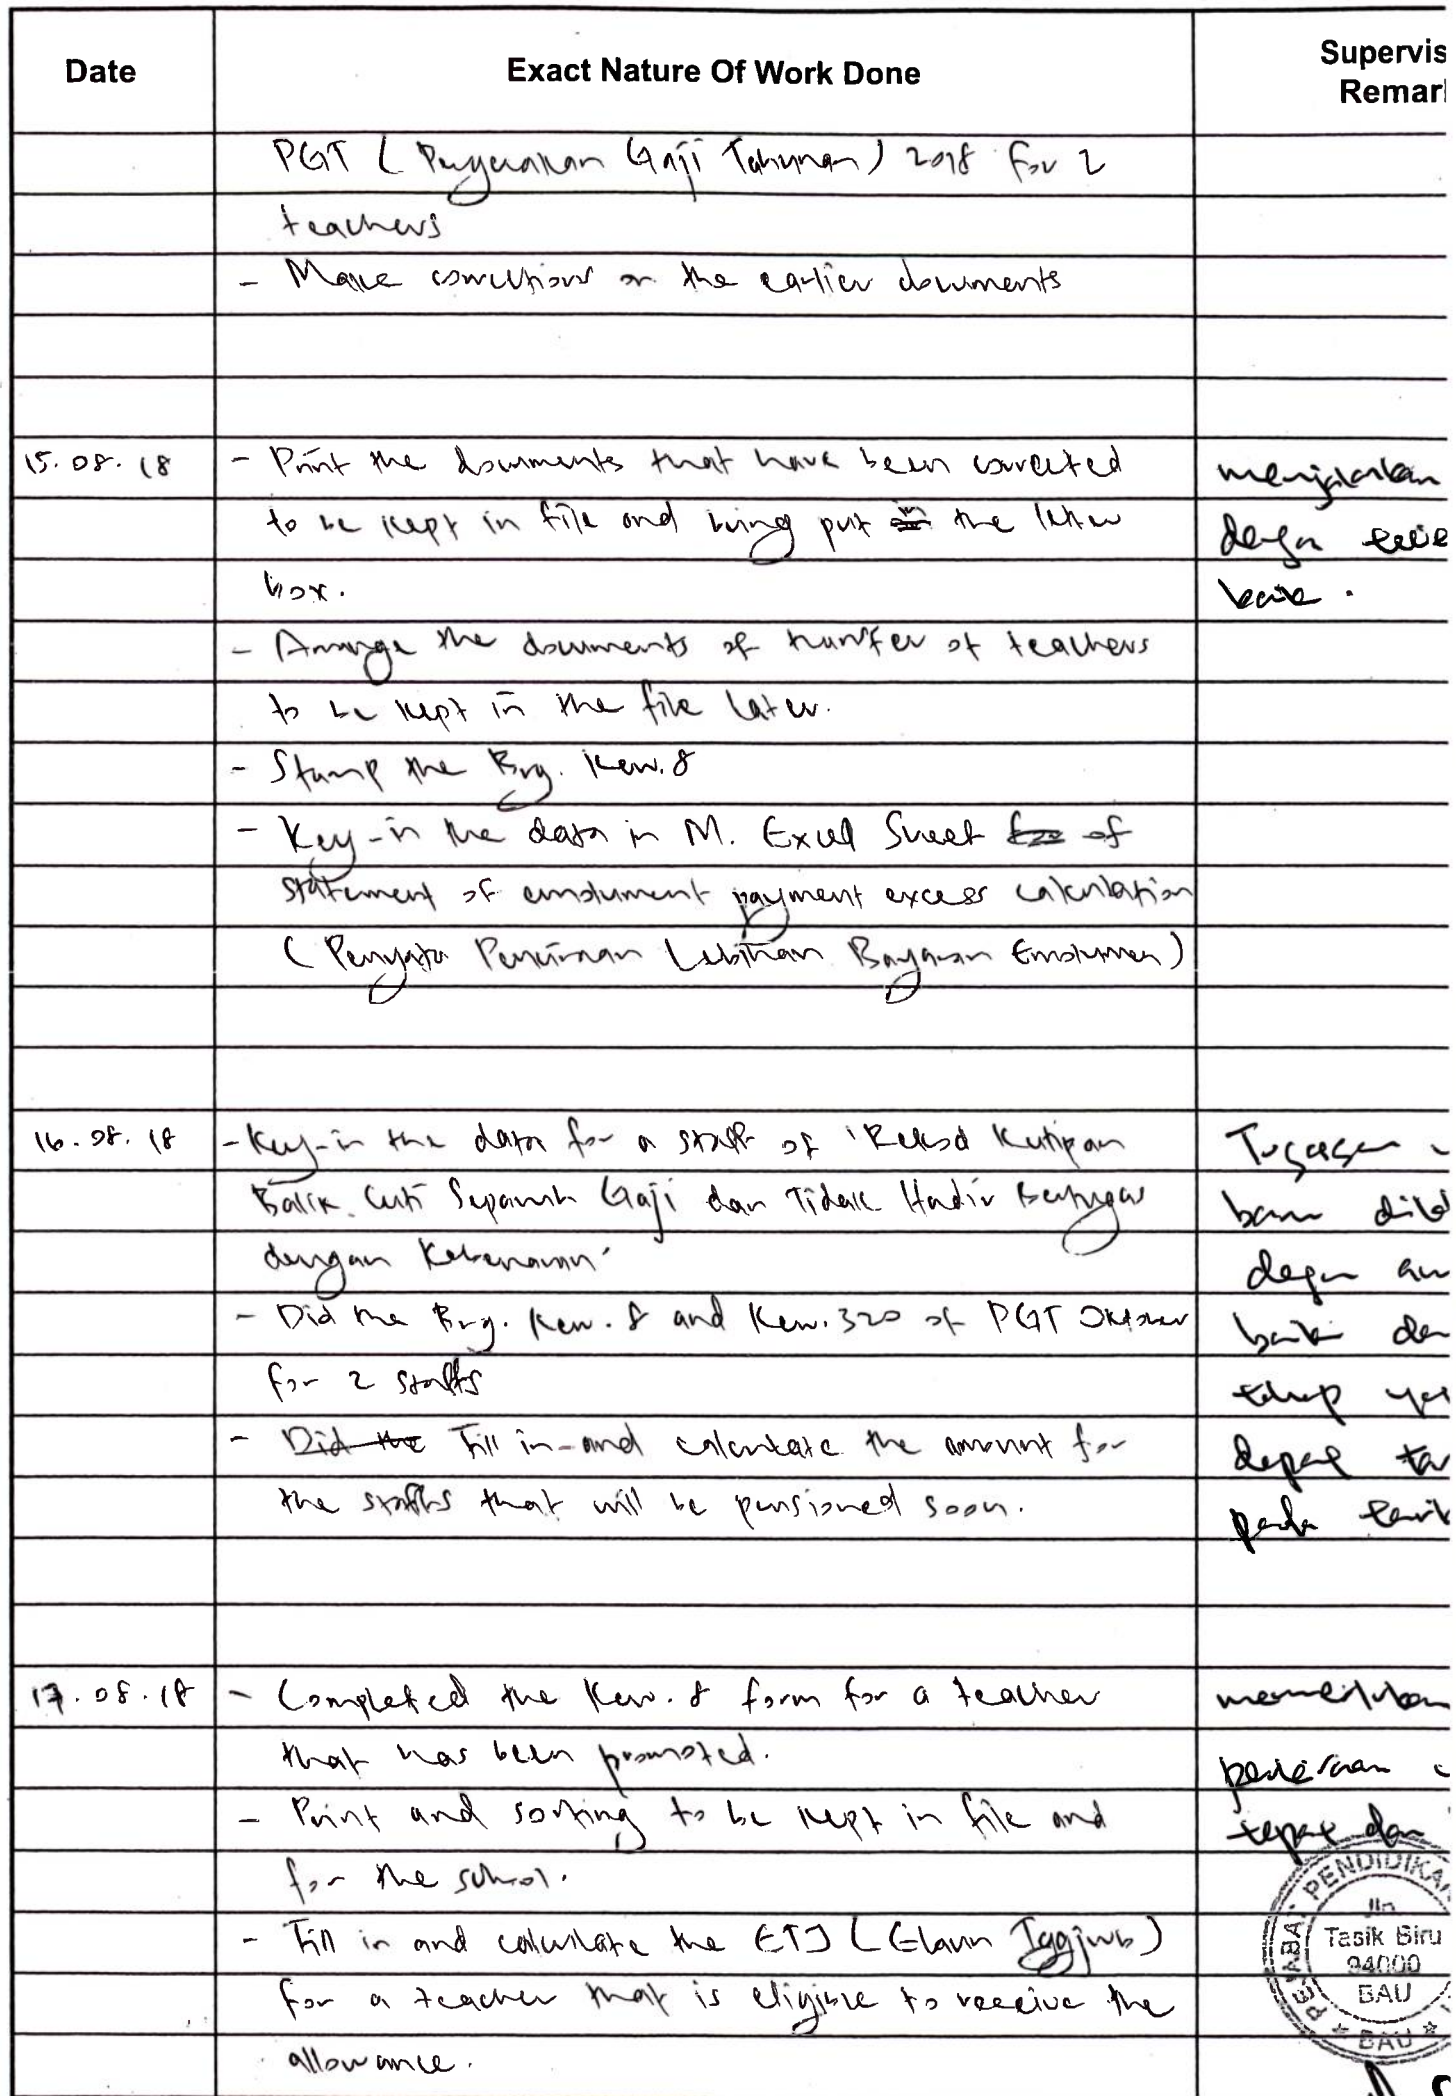 Date
Exact Nature Of Work Done
Supervis
Remar
PGT (Pergerakan Gaji Tahunan) 2018 for 2
teachers
- Make corrections on the earlier documents
15.08.18
- Print the documents that have been corrected
to be kept in file and being put in the letter
box.
menjalankan
dengan
baik.
- Arrange the documents of transfer of teachers
to be kept in the file later.
- Stamp the Brg. Kew.8
- Key-in the data in M. Excel Sheet of
statement of emolument payment excess calculation
(Penyata Penerimaan Lebihan Bayaran Emolumen)
16.08.18
- Key-in the data for a staff of 'Rekod Kutipan
Balik Cuti Separuh Gaji dan Tidak Hadir Bertugas
dengan Kebenaran'
Tugasan
baru
- Did the Brg. Kew. 8 and Kew. 320 of PGT Oktober
for 2 staffs
- Did the Fill in and calculate the amount for
the staffs that will be pensioned soon.
baik
pada
17.08.18
- Completed the Kew. 8 form for a teacher
that has been promoted.
- Print and sorting to be kept in file and
for the school.
tepat dan
- Fill in and calculate the ETJ (Elaun Tggjwb)
for a teacher that is eligible to receive the
allowance.
PEJABAT PENDIDIKA
Jln
Tasik Biru
94000
BAU
* BAU *